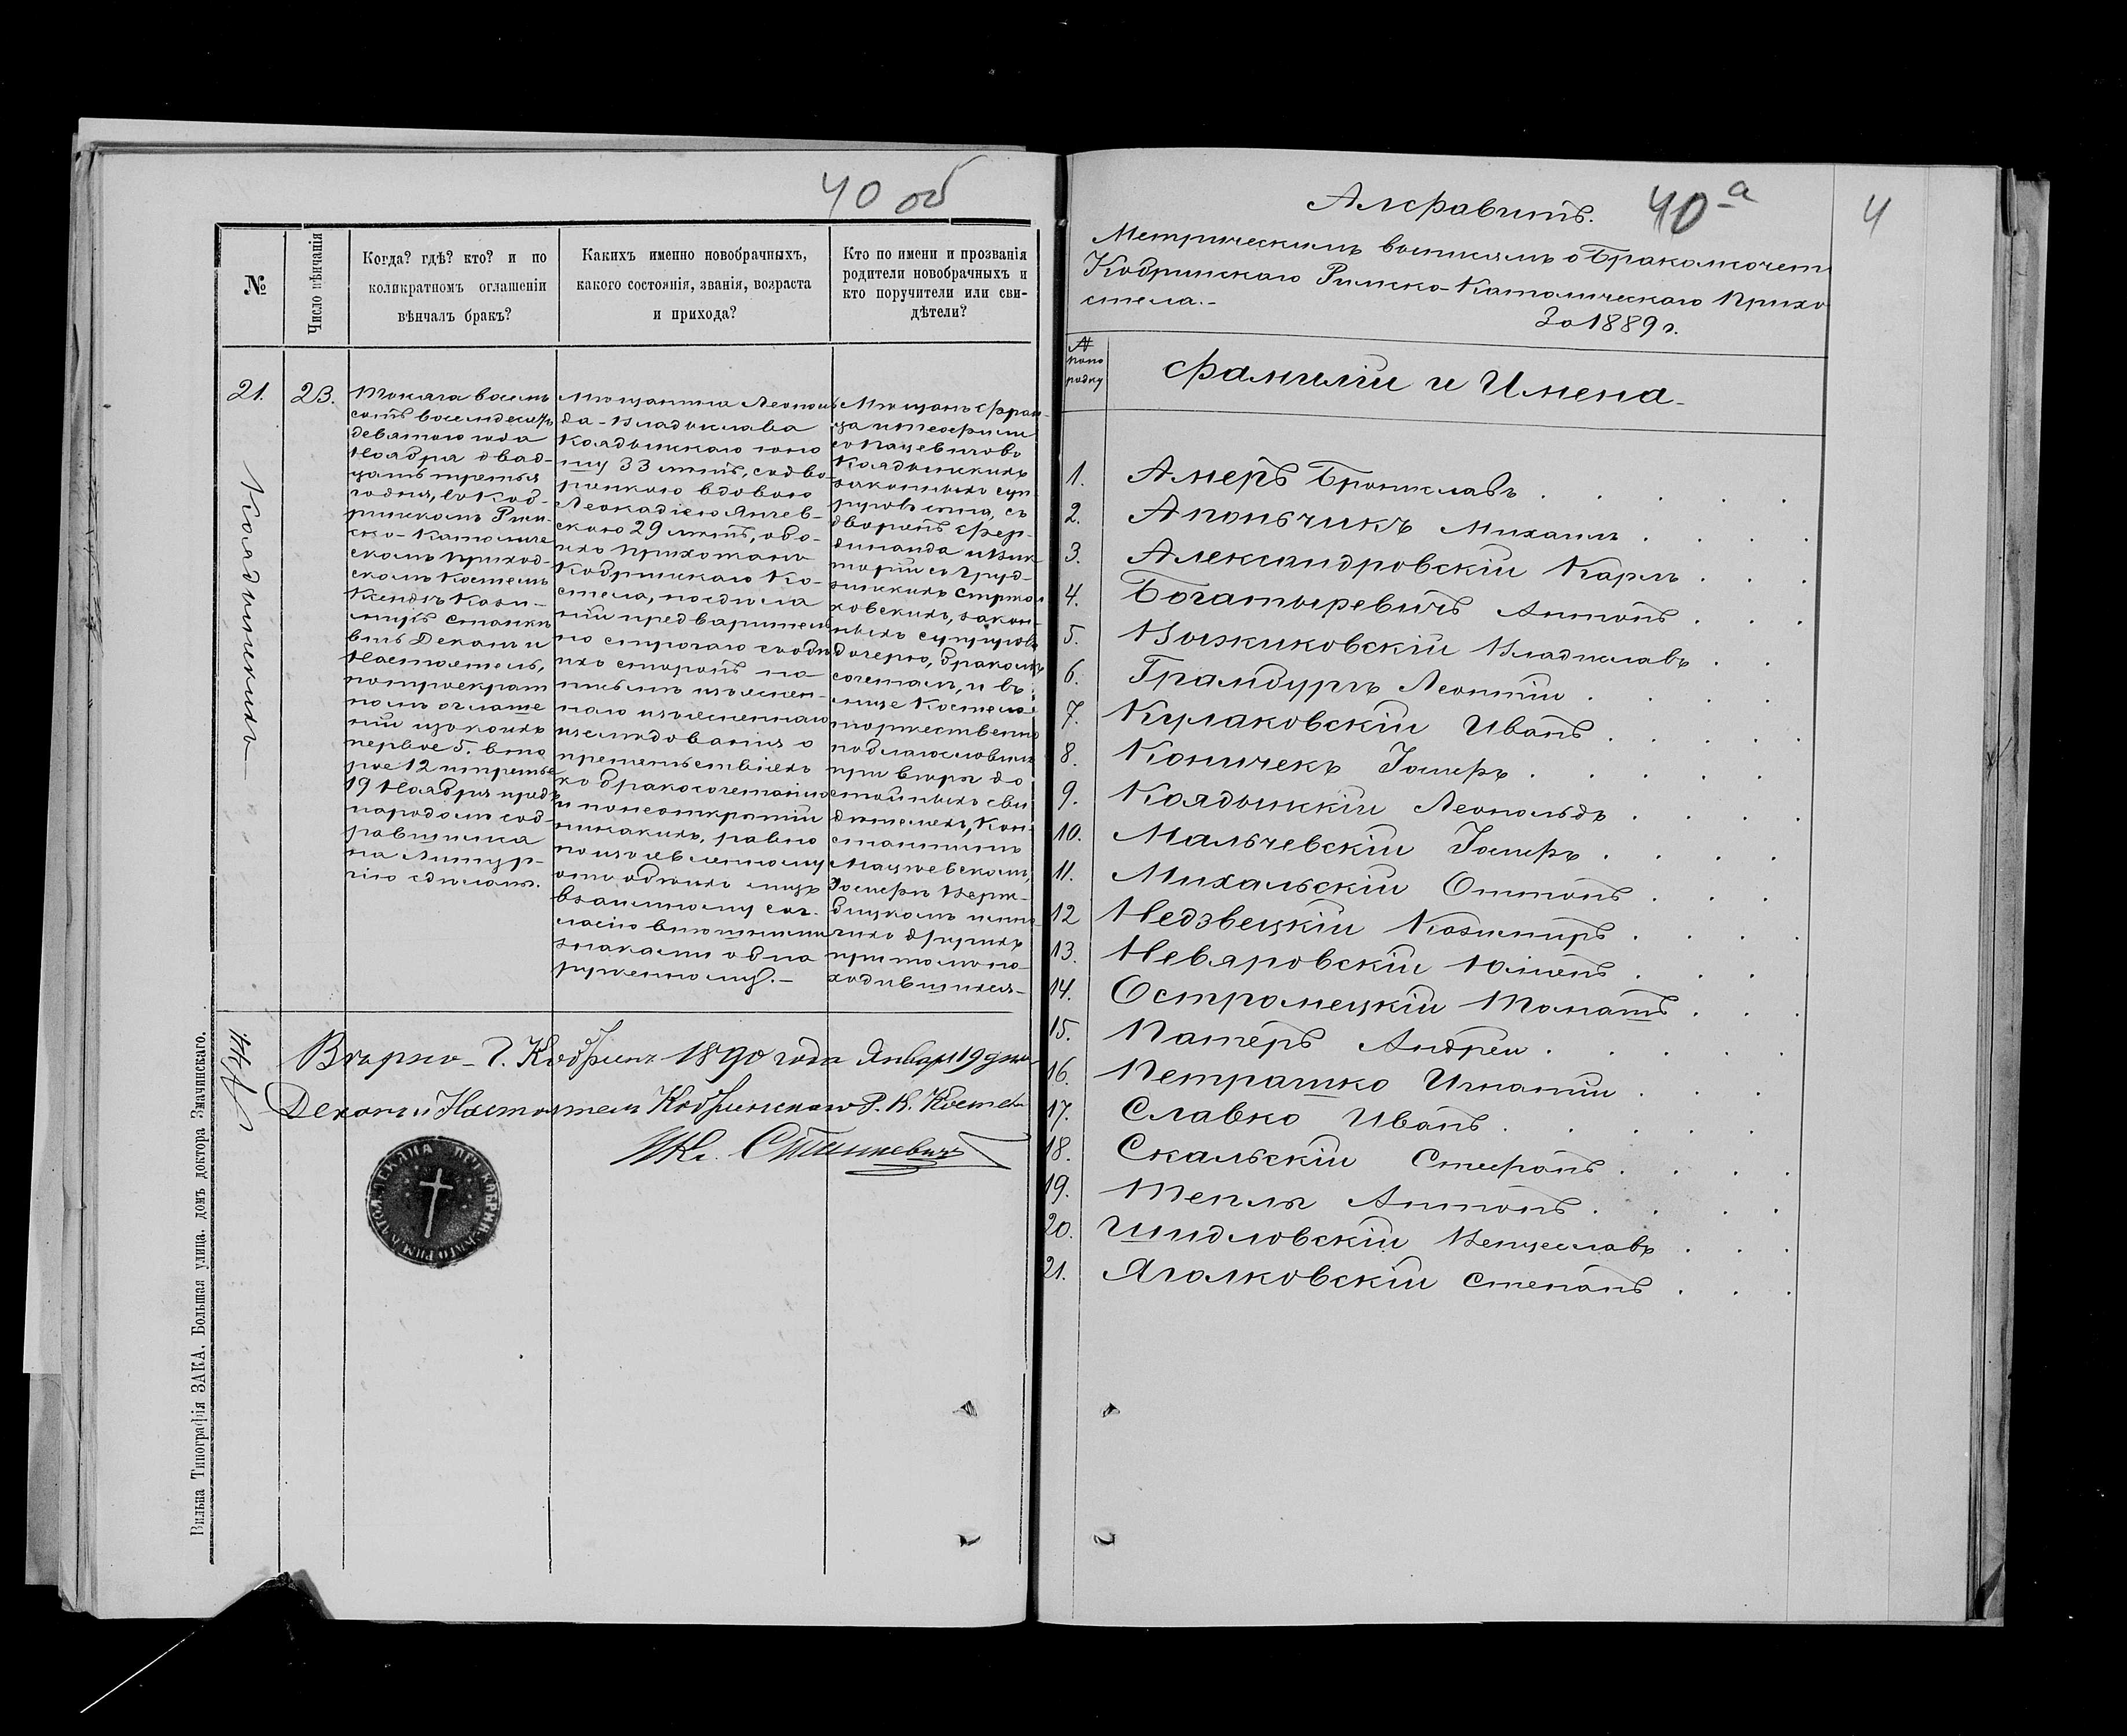 40 об
№
Число вѣнчанія
Когда? гдѣ? кто? и по
коликратномъ оглашеніи
вѣнчалъ бракъ?
Какихъ именно новобрачныхъ,
какого состоянія, званія, возраста
и прихода?
Кто по имени и прозванія
родители новобрачныхъ и
кто поручители или сви-
дѣтели?
21.
Коядынскихъ
23.
Тысяча восемь
сотъ восемдесятъ
девятого года
Ноября двад-
цать третья
годня, въ Коб-
ринскомъ Рим-
ско-Католиче
скомъ приход-
скомъ Костелѣ
Ксендзъ Кази-
миръ Станке
вичъ Деканъ и
Настоятель,
по троекрат
номъ оглаше
ніи изъ коихъ
первое 5. вто
рое 12 и третье
19 Ноября предъ
народомъ соб-
равшимся
на Литур-
гію сдѣланъ.
Мѣщанина Леополь
да-Владислава
Коядынскаго юно
шу 33 лѣтъ, съ дво-
рянкою вдовою
Леокадіею
скою 29 лѣтъ, обо-
ихъ прихожанъ
Кобринскаго Ко-
стела, послѣ
предваритель
но строгаго съ обѣ
ихъ сторонъ на
письмѣ изъяснен-
наго
изслѣдованія о
препятствіяхъ
къ бракосочетанію
и понеоткрытіи
никакихъ, равно
по изъявленному
отъ обоихъ лицъ
взаимному сог-
ласію внѣшними
знаками обна
руженному.-
Мѣщанъ Фран-
ца и Теофили
съ Пацевичовъ
Коядынскихъ
законныхъ суп
руговъ сына, съ
дворянъ Фер-
динанда и Вик
торіи съ Груд-
зинскихъ
ковскихъ, закон
ныхъ супруговъ
дочерью, бракомъ
сочеталъ, и въ
лице Костела
торжественно
поблагословилъ
при вѣры до
стойныхъ сви
дѣтеляхъ, Кон-
стантинѣ
Мацѣевскомъ,
Іосифѣ Верж-
бицкомъ и мно
гихъ другихъ
при томъ на-
ходившихся-
Вѣрно - Г. Кобринъ 1890 года Января 19 дня
Деканъ и Настоятель Кобринскаго Р. К. Костела
Кс. Станкевичъ
Вильна Типографія ЗАКА, Большая улица, домъ доктора Значинскаго.
40а
4
Алфавитъ.
Метрическимъ выписямъ о Бракосочет
Кобринскаго Римско-Католическаго Прихо
стела.-
За 1889 г.
№
попо
рядку
Фамиліи и Имена-
1. Амеръ Брониславъ
2. Апоньчикъ Михаилъ
3. Александровскій Карлъ
4. Богатыревичъ Антонъ
5. Выжиковскій Владиславъ
6. Грамбургъ Леонтій
7. Кулаковскій Иванъ
8. Коничекъ Іосифъ
9. Коядынскій Леопольдъ
10. Мальчевскій Іосифъ
11. Михальскій Оттонъ
12 Недзвецкій Казимиръ
13. Невяровскій Юліанъ
14. Остромецкій Томашъ
15. Патеръ Андрей
16. Петрашко Игнатій
17. Славко Иванъ
18. Скальскій Стефанъ
19. Теплы Антонъ
20. Шидловскій Венцеславъ
21. Яголковскій Степанъ